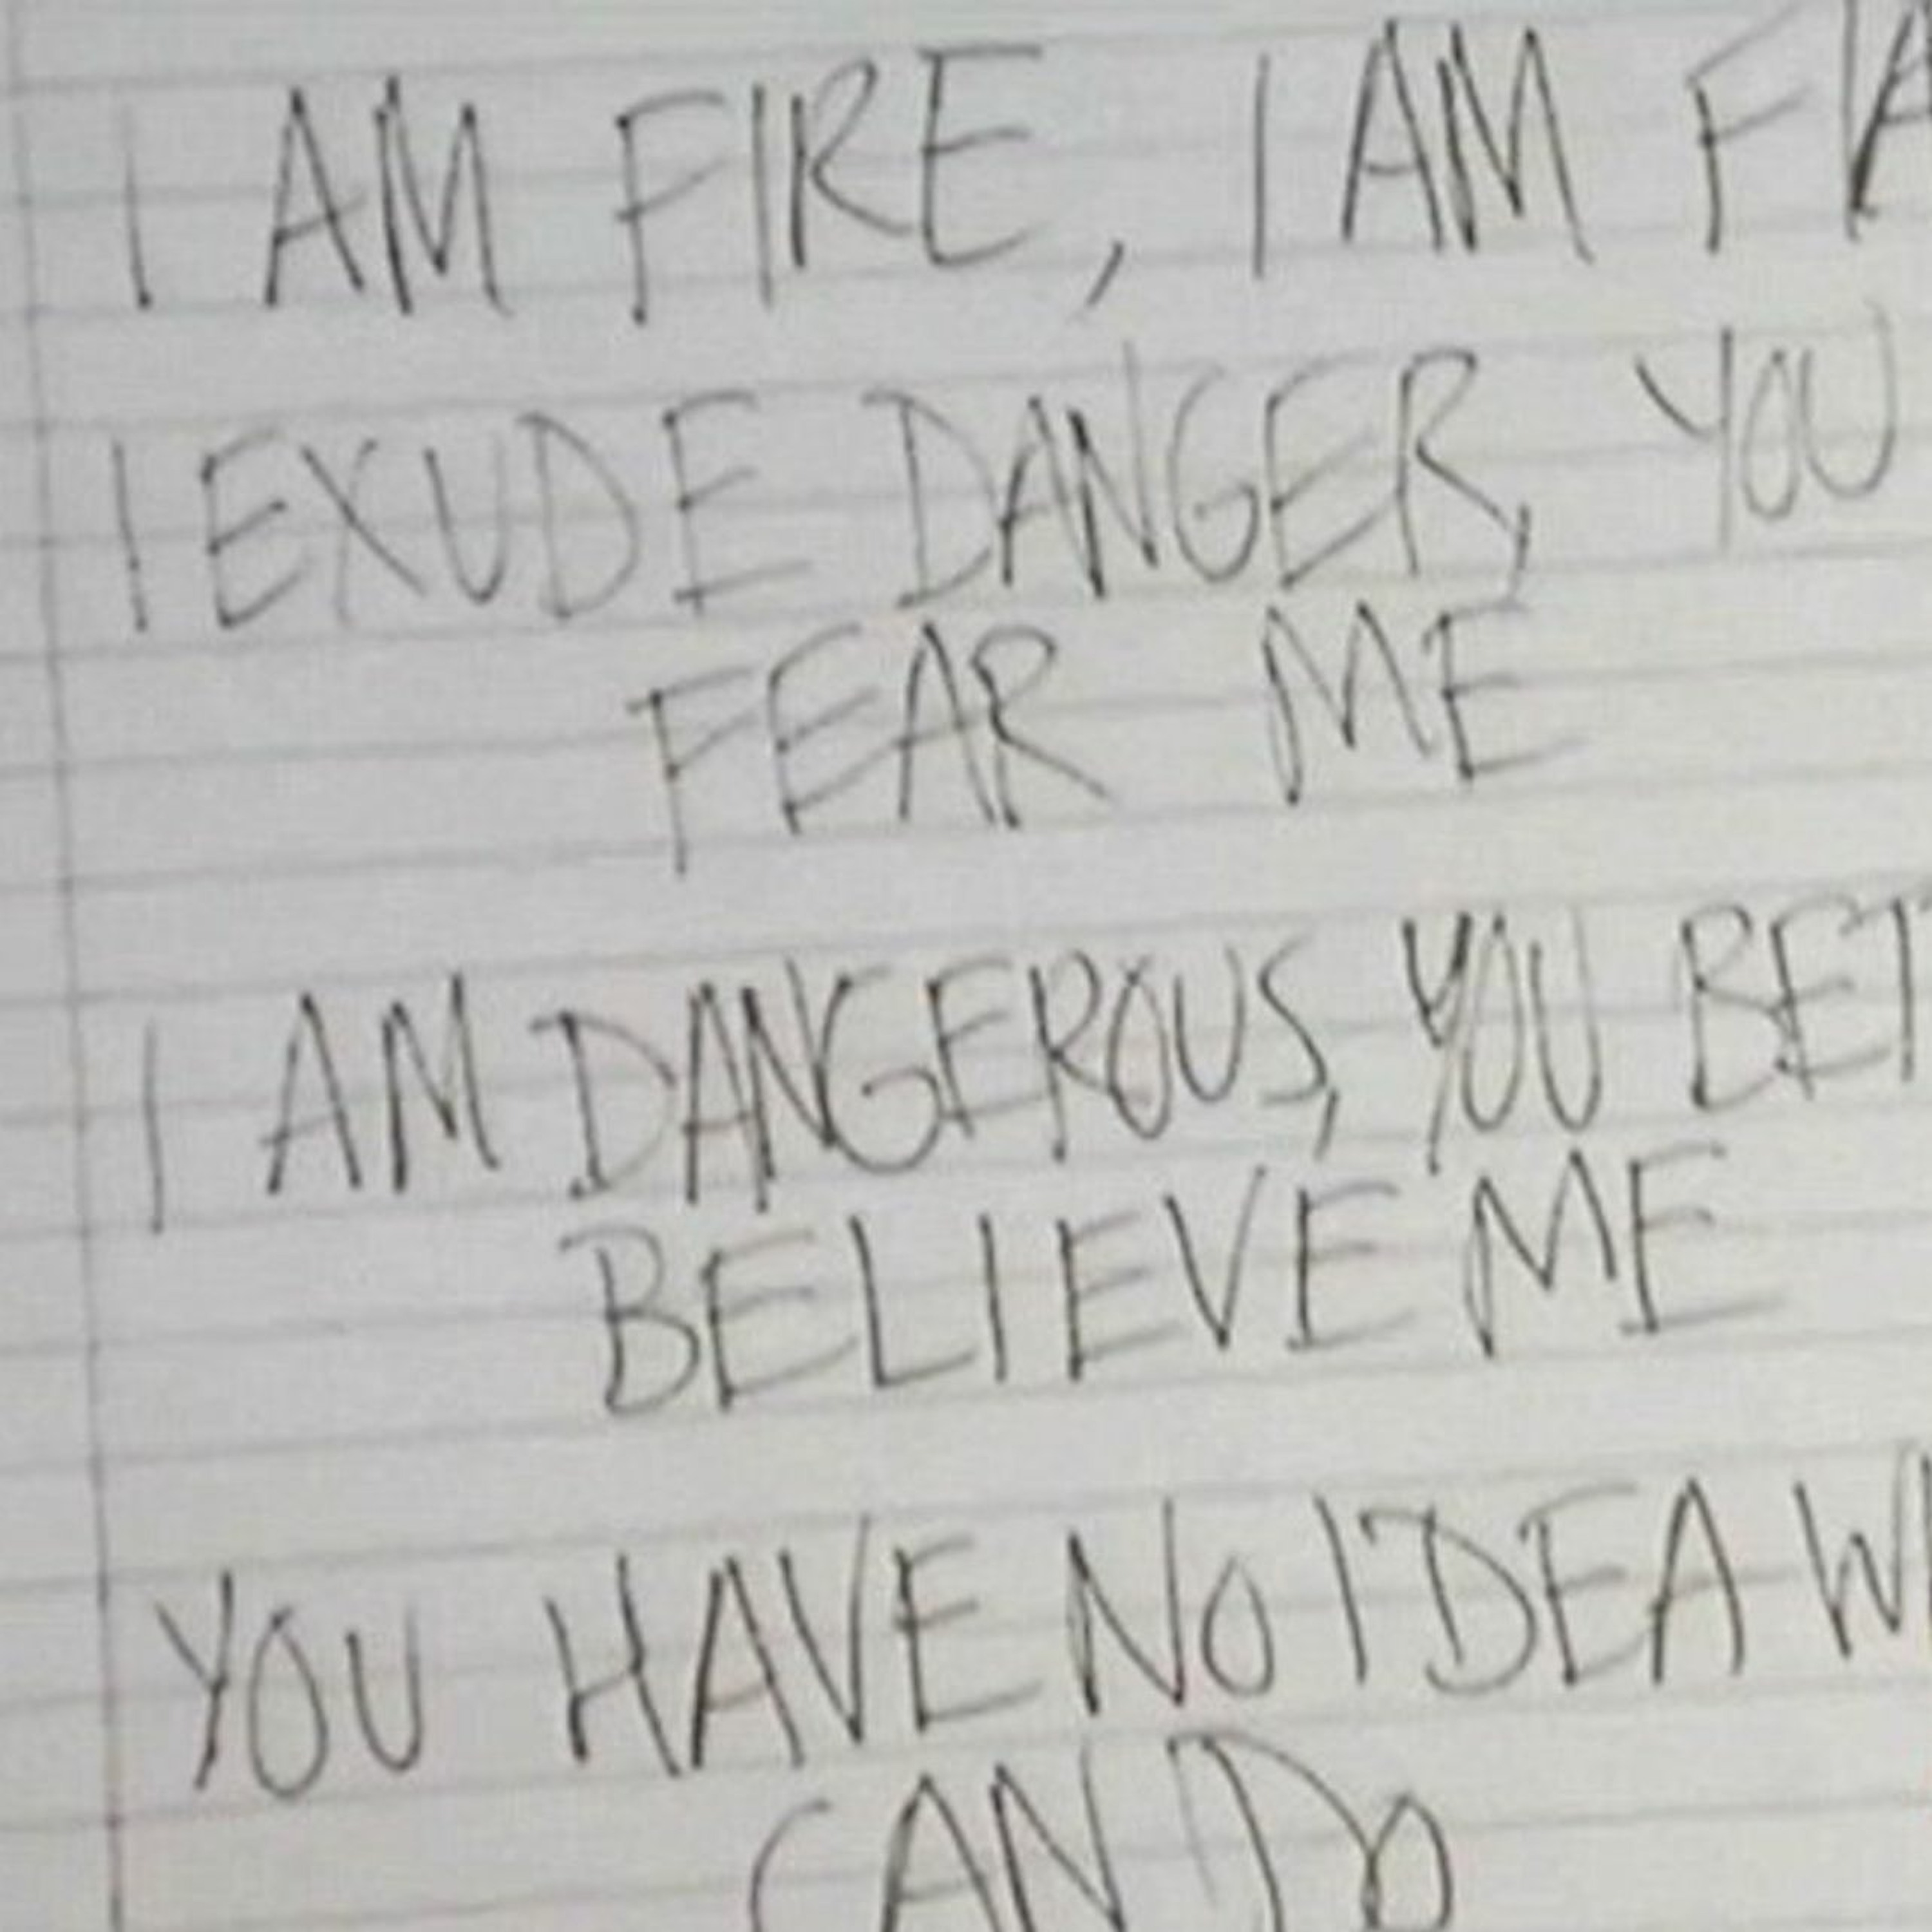 I AM FIRE, I AM FLA
I EXUDE DANGER, YOU
FEAR ME
I AM DANGEROUS, YOU BET
BELIEVE ME
YOU HAVE NO IDEA W
CAN DO